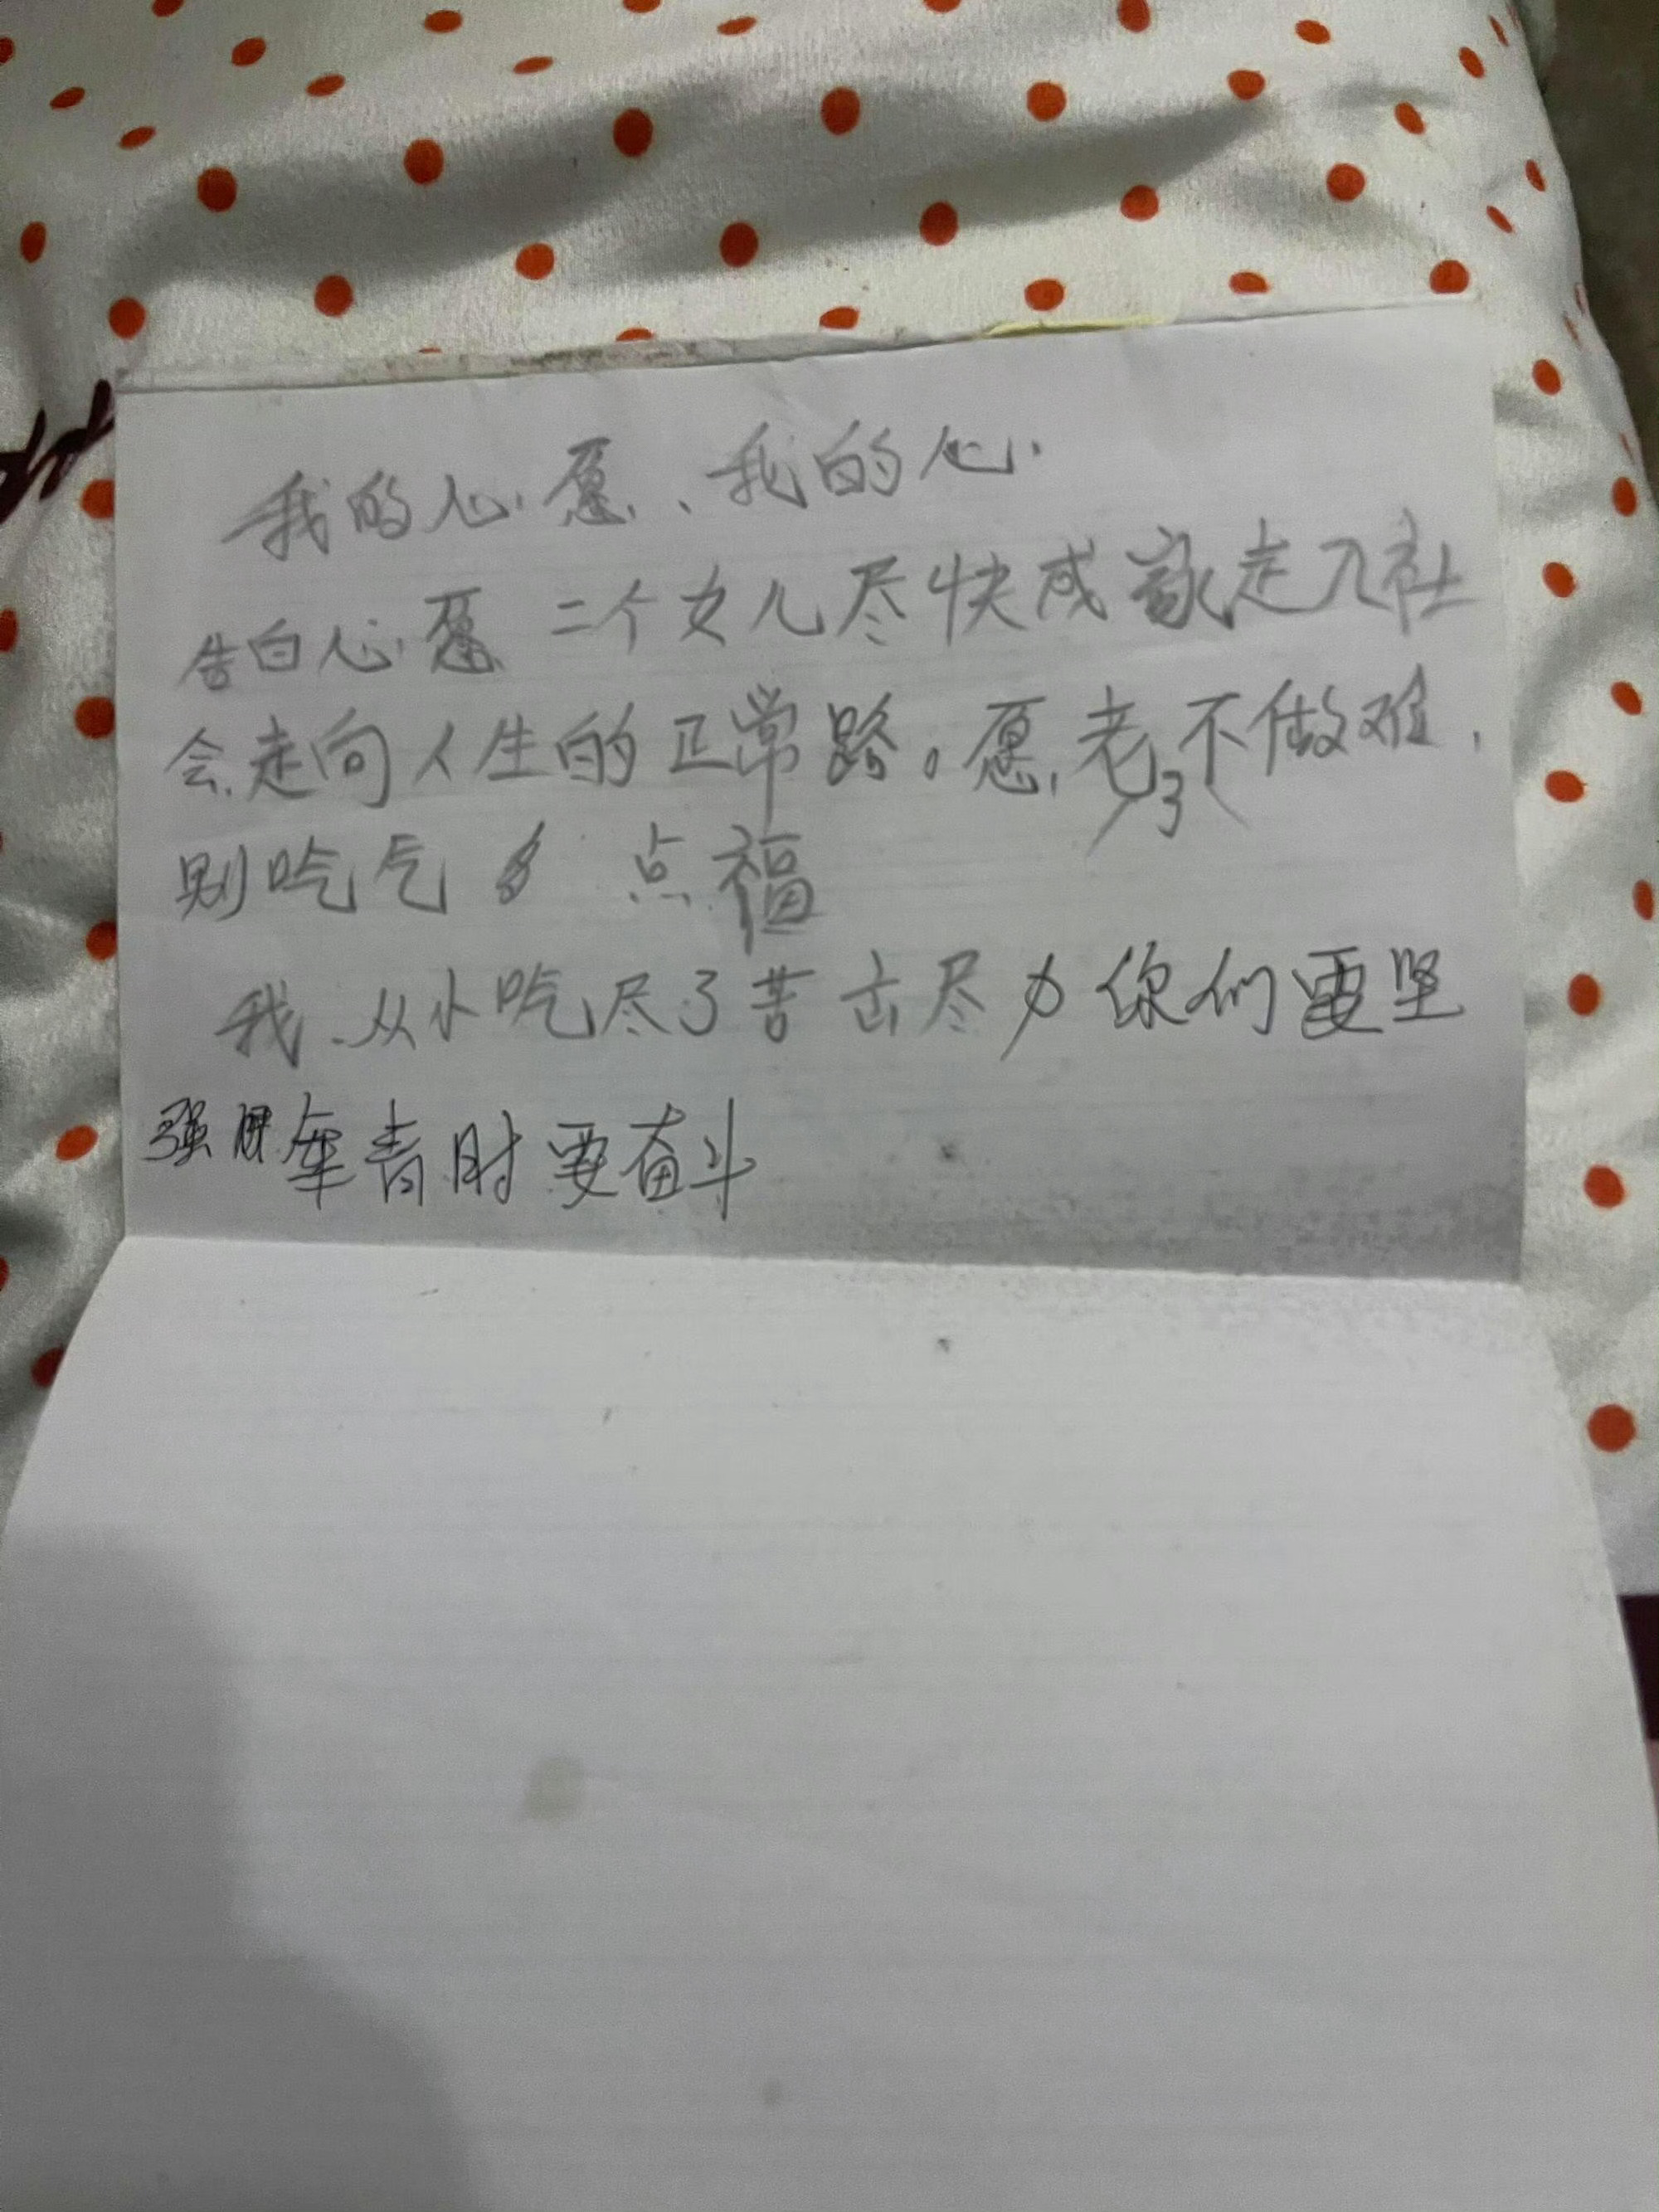 我的心愿、我的心.
告白心愿 二个女儿尽快成家走入社
会走向人生的正常路。愿老了不做难,
则吃气多 点福
我、从小吃尽了苦 去尽力你们要坚
强 年青时要奋斗